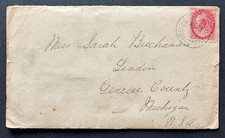 Miss Sarah Buchanan
Linden
Genesee County
Michigan
U.S.A